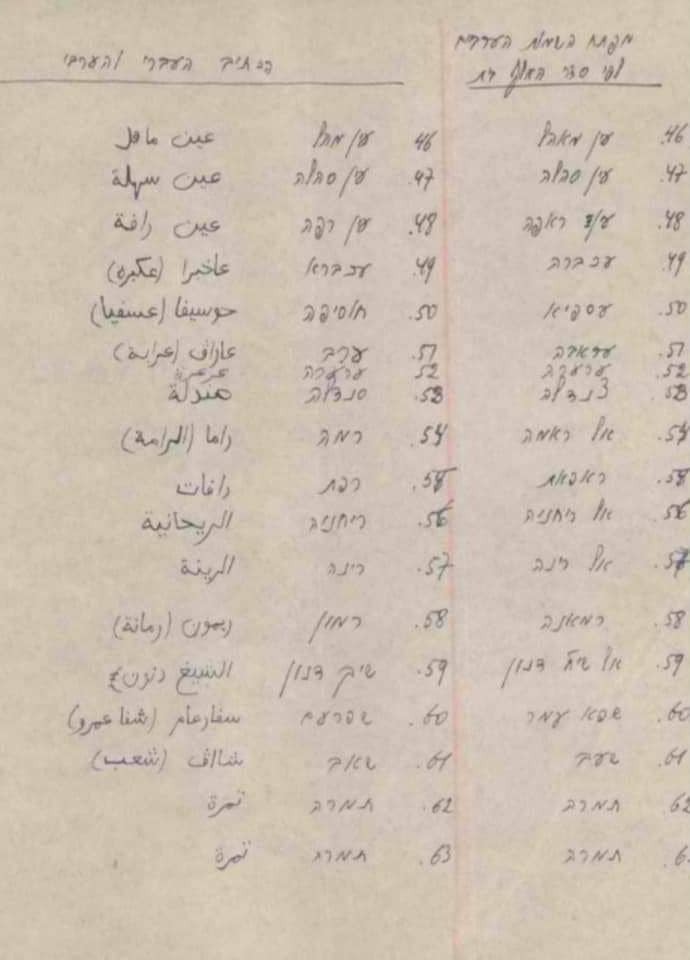 מפתח השמות הערביים
לפי סדר האלף בית
הכתיב העברי והערבי
46. עין מאהל 46. עין מהל عين ماهل
47. עין סהלה 47. עין סהלה عين سهلة
48. עין ראפה 48. עין רפה عين رافة
49. עכברה 49. עכברא عاخبرا (عكبره)
50. עספיא 50. חוסיפה حوسيفا (عسفيا)
51. עראבה 51. ערב عاراڤ (عرابة)
52. ערערה 52. ערערה عرعرة
53. צנדלה 53. סנדלה صندلة
54. אל ראמה 54. רמה راما (الرامة)
55. ראפאת 55. רפת رافات
56. אל ריחניה 56. ריחניה الريحانية
57. אל רינה 57. רינה الرينة
58. רמאנה 58. רמון ريمون (رمانة)
59. אל שיח' דנון 59. שיך דנון الشيخ دنون
60. שפא עמר 60. שפרעם سفارعام (شفا عمرو)
61. שעב 61. שאב شااڤ (شعب)
62. תמרה 62. תמרה تمرة
6. תמרה 63. תמרה تمرة